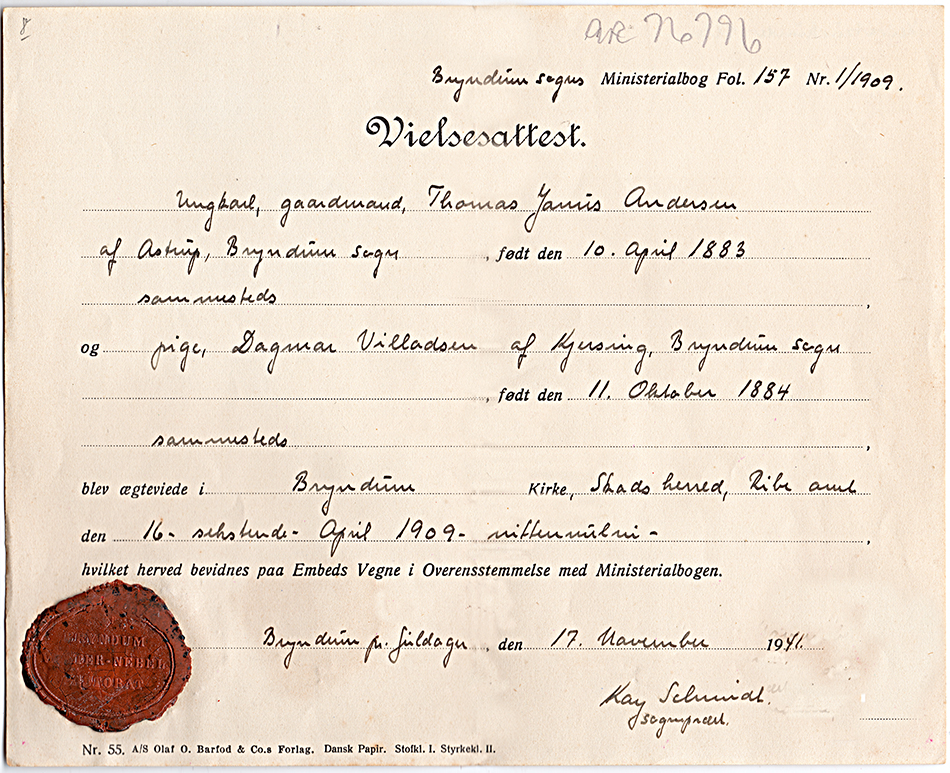 8
arc 76796
Bryndum sogns Ministerialbog Fol. 157 Nr. 1/1909.
Vielsesattest.
Ungkarl, gaardmand, Thomas Janus Andersen
af Astrup, Bryndum sogn, født den 10. April 1883
sammesteds,
og pige, Dagmar Villadsen af Kjersing, Bryndum sogn
, født den 11. Oktober 1884
sammesteds,
blev ægteviede i Bryndum Kirke, Skads herred, Ribe amt
den 16- sekstende- April 1909- nittennulni-,
hvilket herved bevidnes paa Embeds Vegne i Overensstemmelse med Ministerialbogen.
BRYNDUM
ER-NEBEL
TORAT
Bryndum pr. Guldager, den 17. November 1941.
Kay Schmidt.
sognepræst.
Nr. 55. A/S Olaf O. Barfod & Co.s Forlag. Dansk Papir. Stofkl. I. Styrkekl. II.